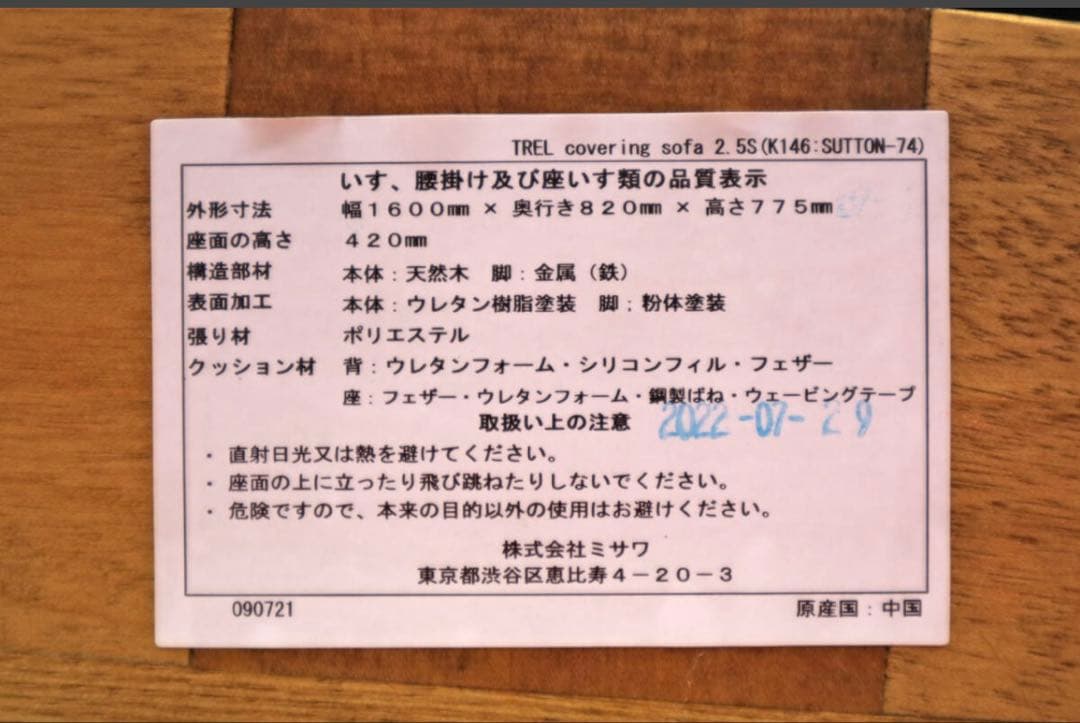 TREL covering sofa 2.5S(K146:SUTTON-74)
いす、腰掛け及び座いす類の品質表示
外形寸法 幅１６００㎜ × 奥行き８２０㎜ × 高さ７７５㎜
座面の高さ ４２０㎜
構造部材 本体：天然木 脚：金属（鉄）
表面加工 本体：ウレタン樹脂塗装 脚：粉体塗装
張り材 ポリエステル
クッション材 背：ウレタンフォーム・シリコンフィル・フェザー
座：フェザー・ウレタンフォーム・鋼製ばね・ウェービングテープ
取扱い上の注意 2022-07-29
・ 直射日光又は熱を避けてください。
・ 座面の上に立ったり飛び跳ねたりしないでください。
・ 危険ですので、本来の目的以外の使用はお避けください。
株式会社ミサワ
東京都渋谷区恵比寿４－２０－３
090721 原産国：中国